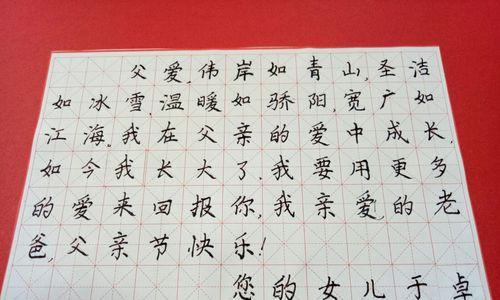 父爱,伟岸如青山,圣洁
如冰雪,温暖如骄阳,宽广如
江海。我在父亲的爱中成长,
如今我长大了,我要用更多
的爱来回报你,我亲爱的老
爸,父亲节快乐!
您的女儿于卓